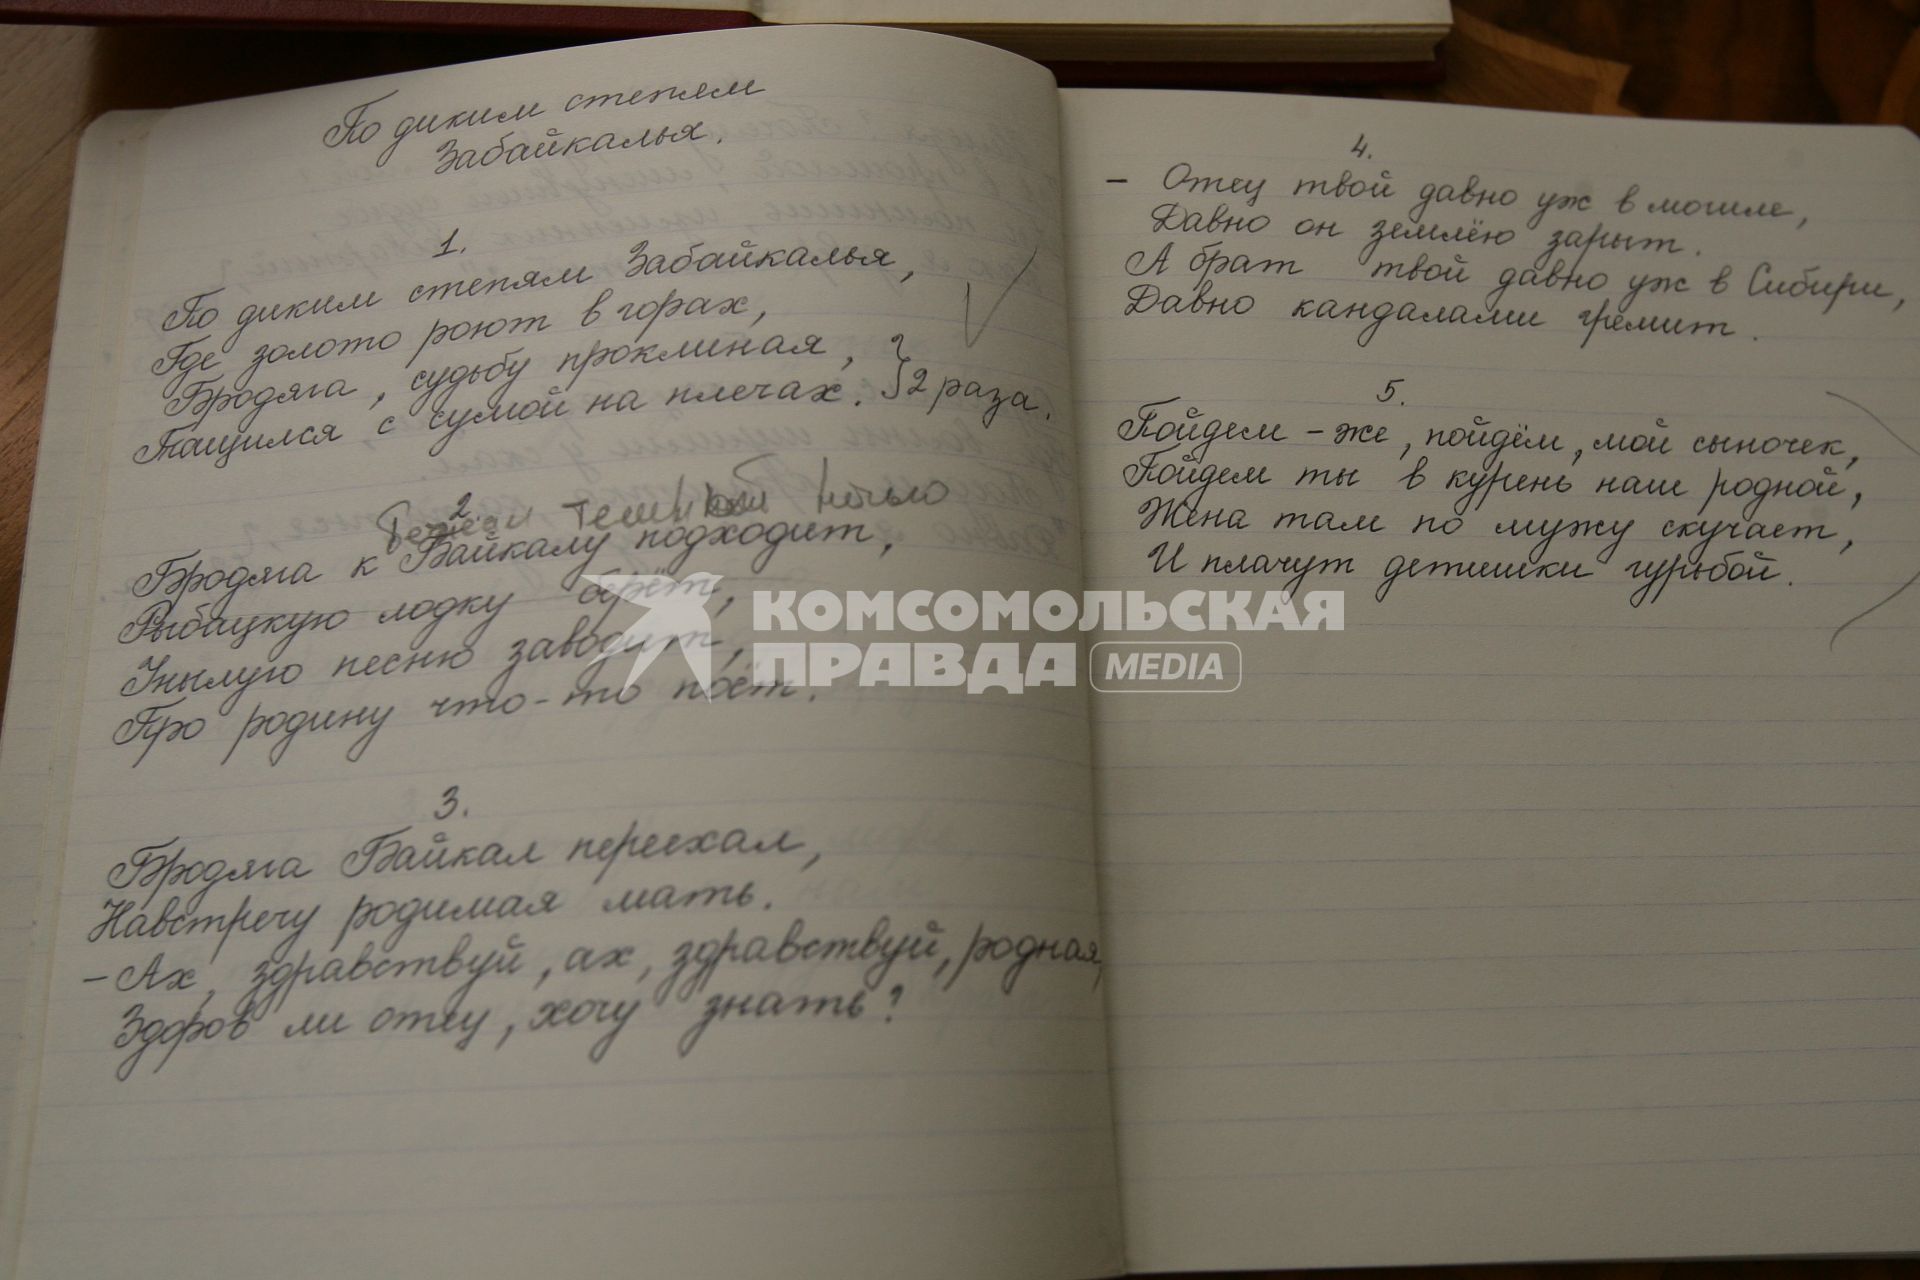 По диким степям
Забайкалья.
1.
По диким степям Забайкалья,
Где золото роют в горах,
Бродяга, судьбу проклиная,
Тащился с сумой на плечах. } 2 раза.
2.
темной ночью
Бродяга к Байкалу подходит,
Рыбацкую лодку берёт,
Унылую песню заводит,
Про родину что-то поёт.
3.
Бродяга Байкал переехал,
Навстречу родимая мать.
- Ах, здравствуй, ах, здравствуй, родная,
Здоров ли отец, хочу знать?
4.
- Отец твой давно уж в могиле,
Давно он землёю зарыт.
А брат твой давно уж в Сибири,
Давно кандалами гремит.
5.
Пойдем-же, пойдём, мой сыночек,
Пойдем ты в курень наш родной,
Жена там по мужу скучает,
И плачут детишки гурьбой.
КОМСОМОЛЬСКАЯ
ПРАВДА MEDIA